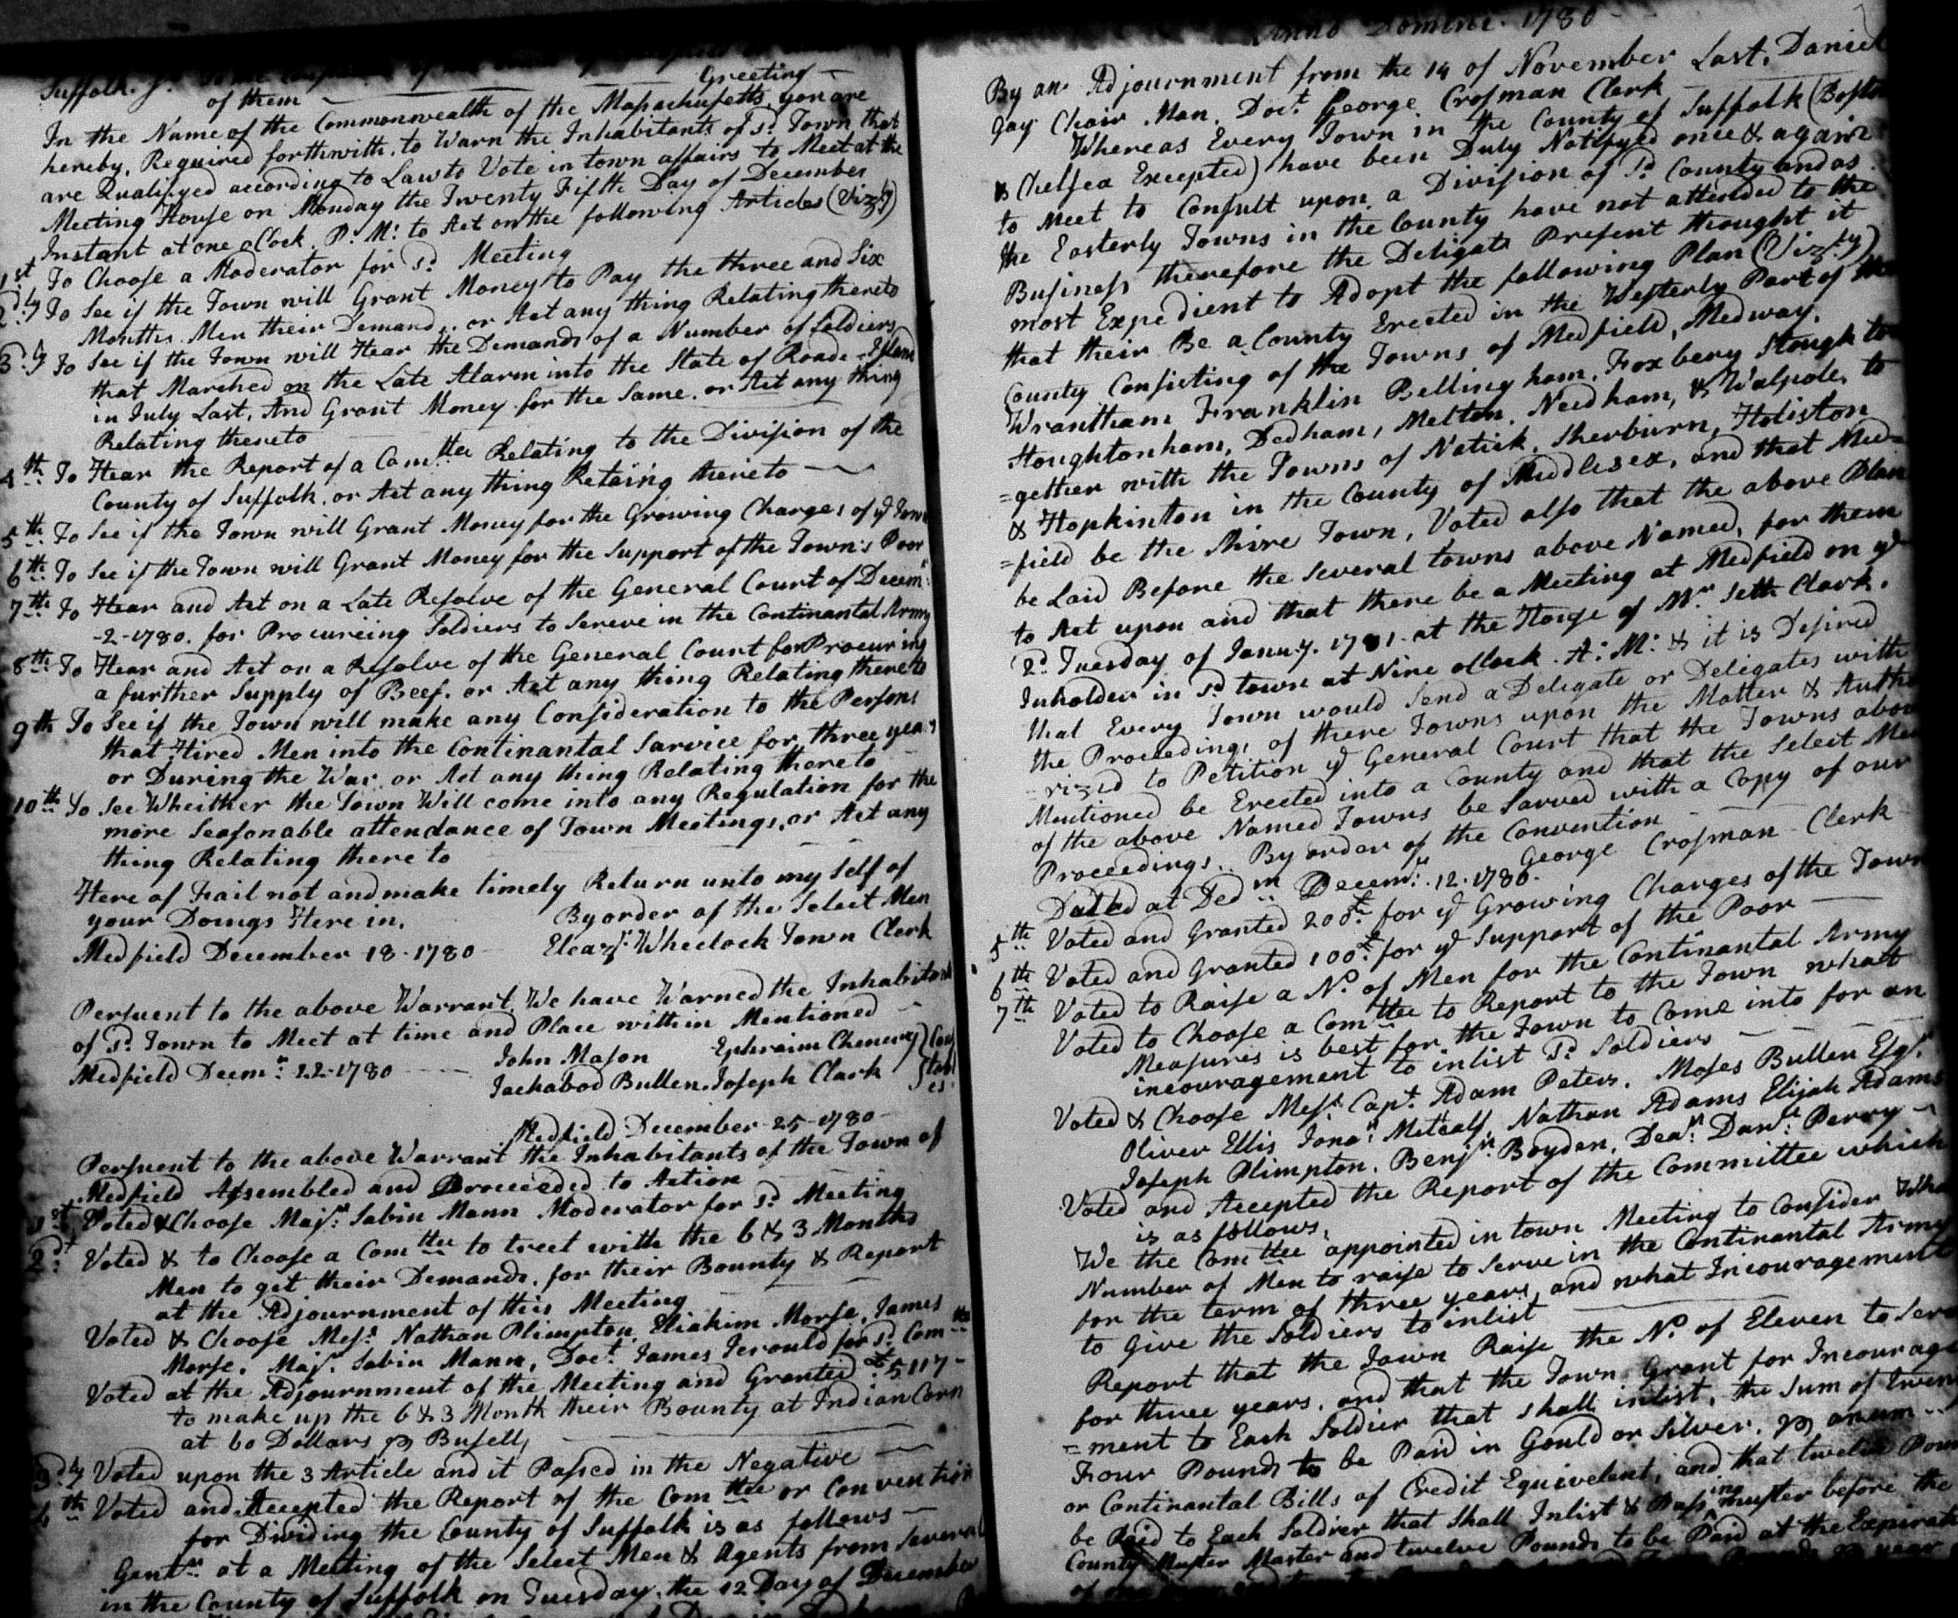 Suffolk. Ss. To the
Greeting
of them
In the Name of the Commonwealth of the Massachusetts, you are
hereby, Required forthwith, to Warn the Inhabitants of sd. Town that
are Qualifyed according to Law to Vote in town affairs to Meet at the
Meeting House on Monday the Twenty Fifth Day of December
Instant at one oClock P. M: to Act on the following Articles (Vizly)
1st To Choose a Moderator for sd. Meeting
2dly To See if the Town will Grant Money to Pay the three and Six
Months Men their Demand, or Act any thing Relating thereto
3dly To See if the Town will Hear the Demands of a Number of Soldiers
that Marched on the Late Alarm into the State of Roade Island
in July Last, And Grant Money for the Same. or Act any thing
Relating thereto
4th To Hear the Report of a Comttee Relating to the Division of the
County of Suffolk, or Act any thing Retaing thereto
5th To See if the Town will Grant Money for the Growing Charges of ye Town
6th To See if the Town will Grant Money for the Support of the Town's Poor
7th To Hear and Act on a Late Resolve of the General Court of Decemr
-2-1780. for Procureing Soldiers to Sereve in the Continantal Army
8th To Hear and Act on a Resolve of the General Court for Procuring
a further Supply of Beef. or Act any thing Relating thereto
9th To See if the Town will make any Consideration to the Persons
that Hired Men into the Continantal Sarvice for three years
or During the War or Act any thing Relating thereto
10th To See Wheither the Town Will come into any Regulation for the
more Seasonable attendance of Town Meetings, or Act any
thing Relating there to
Here of Fail not and make timely Return unto my Self of
your Doings Here in.
By order of the Select Men
Medfield December 18-1780 Eleazr Wheelock Town Clerk
Persuent to the above Warrant, We have Warned the Inhabitants
of sd. Town to Meet at time and Place within Mentioned
John Mason Ephraim Cheneny } Con
Medfield Decmr 22-1780 Jachabod Bullen Joseph Clark } stabl
es
Medfield December-25-1780
Persuent to the above Warrant the Inhabitants of the Town of
Medfield Assembled and Proceeded to Action
1st Voted & Choose Majr: Sabin Mann Moderator for sd. Meeting
2d: Voted & to Choose a Comttee to treet with the 6 & 3 Months
Men to get their Demands. for their Bounty & Report
at the Adjournment of this Meeting
Voted & Choose Messrs Nathan Plimpton, Eliakim Morse, James
Morse, Majr. Sabin Mann, Doct. James Jerould for sd. Comttee
Voted at the Adjournment of the Meeting and Granted £5117-
to make up the 6 & 3 Month their Bounty at Indian Corn
at 60 Dollars ⅌ Busell,
3dly Voted upon the 3 Article and it Passed in the Negative
4th Voted and Accepted the Report of the Comttee or Convention
for Dividing the County of Suffolk is as follows
Gentn at a Meeting of the Select Men & Agents from Several
in the County of Suffolk on Tuesday, the 12 Day of December
Anno Domini. 1780
By an Adjournment from the 14 of November Last, Daniel
Gay Chair Man. Doct. George Crosman Clark
Whereas Every Town in the County of Suffolk (Boston
& Chelsea Excepted) have been Duly Notifyed once & again
to Meet to Consult upon a Division of sd. County and as
the Easterly Towns in the County have not attended to the
Business therefore the Deligats Present thought it
most Expedient to Adopt the following Plan (Vizly)
that their Be a County Erected in the Westerly Part of the
County Consisting of the Towns of Medfield, Medway,
Wrantham Franklin Bellingham, Foxbery Stoughton
Stoughtonham, Dedham, Melton, Needham, & Walpole, to
=gether with the Towns of Natick, Sherburn, Holiston
& Hopkinton in the County of Middlesex, and that Med=
=field be the Shire Town, Voted also that the above Plan
be Laid Before the Several towns above Named, for them
to Act upon and that there be a Meeting at Medfield on ye
2d Tuesday of Janury. 1781. at the House of Mr Seth Clark.
Inholder in sd town at Nine oClock. A: M: & it is Desired
that Every Town would Send a Deligate or Deligates with
the Proceedings of there Towns upon the Matter & Autho
=rized to Petition ye General Court that the Towns above
Mentioned be Erected into a County and that the Select Men
of the above Named Towns be Sarved with a Copy of our
Proceedings. By order of the Convention
George Crosman Clerk
Dated at Dedm Decemr. 12-1780.
5th Voted and Granted 200£ for ye Growing Charges of the Town
6th Voted and Granted 100£ for ye Support of the Poor
7th Voted to Raise a No. of Men for the Continantal Army
Voted to Choose a Comttee to Report to the Town what
Measures is best for the Town to Come into for an
incouragement to inlist sd. Soldiers
Voted & Choose Messr. Capt. Adam Peters. Moses Bullen Esqr.
Oliver Ellis Jonan Metcalf, Nathan Adams Elijah Adams
Joseph Plimpton. Benjn. Boyden, Dean. Danl. Perry
Voted and Accepted the Report of the Committee which
is as follows,
We the Comttee appointed in town Meeting to Consider What
Number of Men to raise to Serve in the Continantal Army
for the term of three years, and what Incouragement
to Give the Soldiers to inlist
Report that the Town Raise the No. of Eleven to Serve
for three years, and that the Town Grant for Incourage
=ment to Each Soldier that shall inlist, the Sum of twenty
Four Pounds to be Paid in Gould or Silver. ⅌ anum
or Continantal Bills of Credit Equivelent, and that twelve Pounds
be Paid to Each Soldier that Shall Inlist & Passing muster before the
County Muster Master and twelve Pounds to be Paid at the Expirati